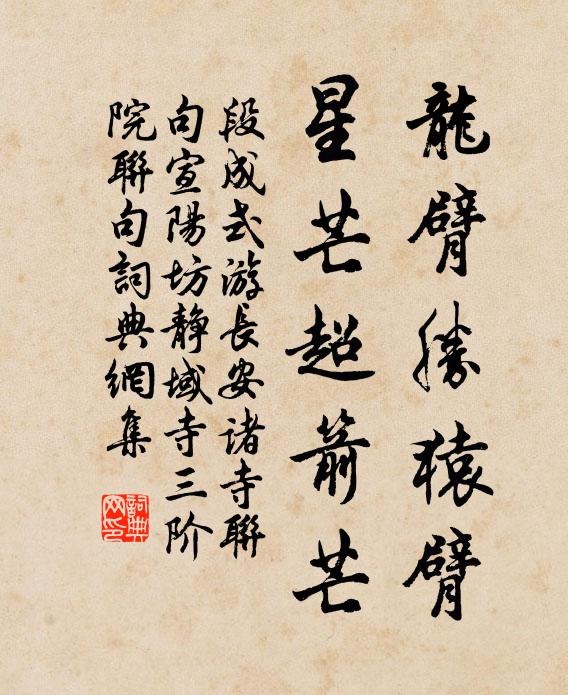 龍臂勝猿臂
星芒超箭芒
段成式游長安諸寺聯
句宣陽坊靜域寺三阶
院聯句詞典網集
詞典
网印